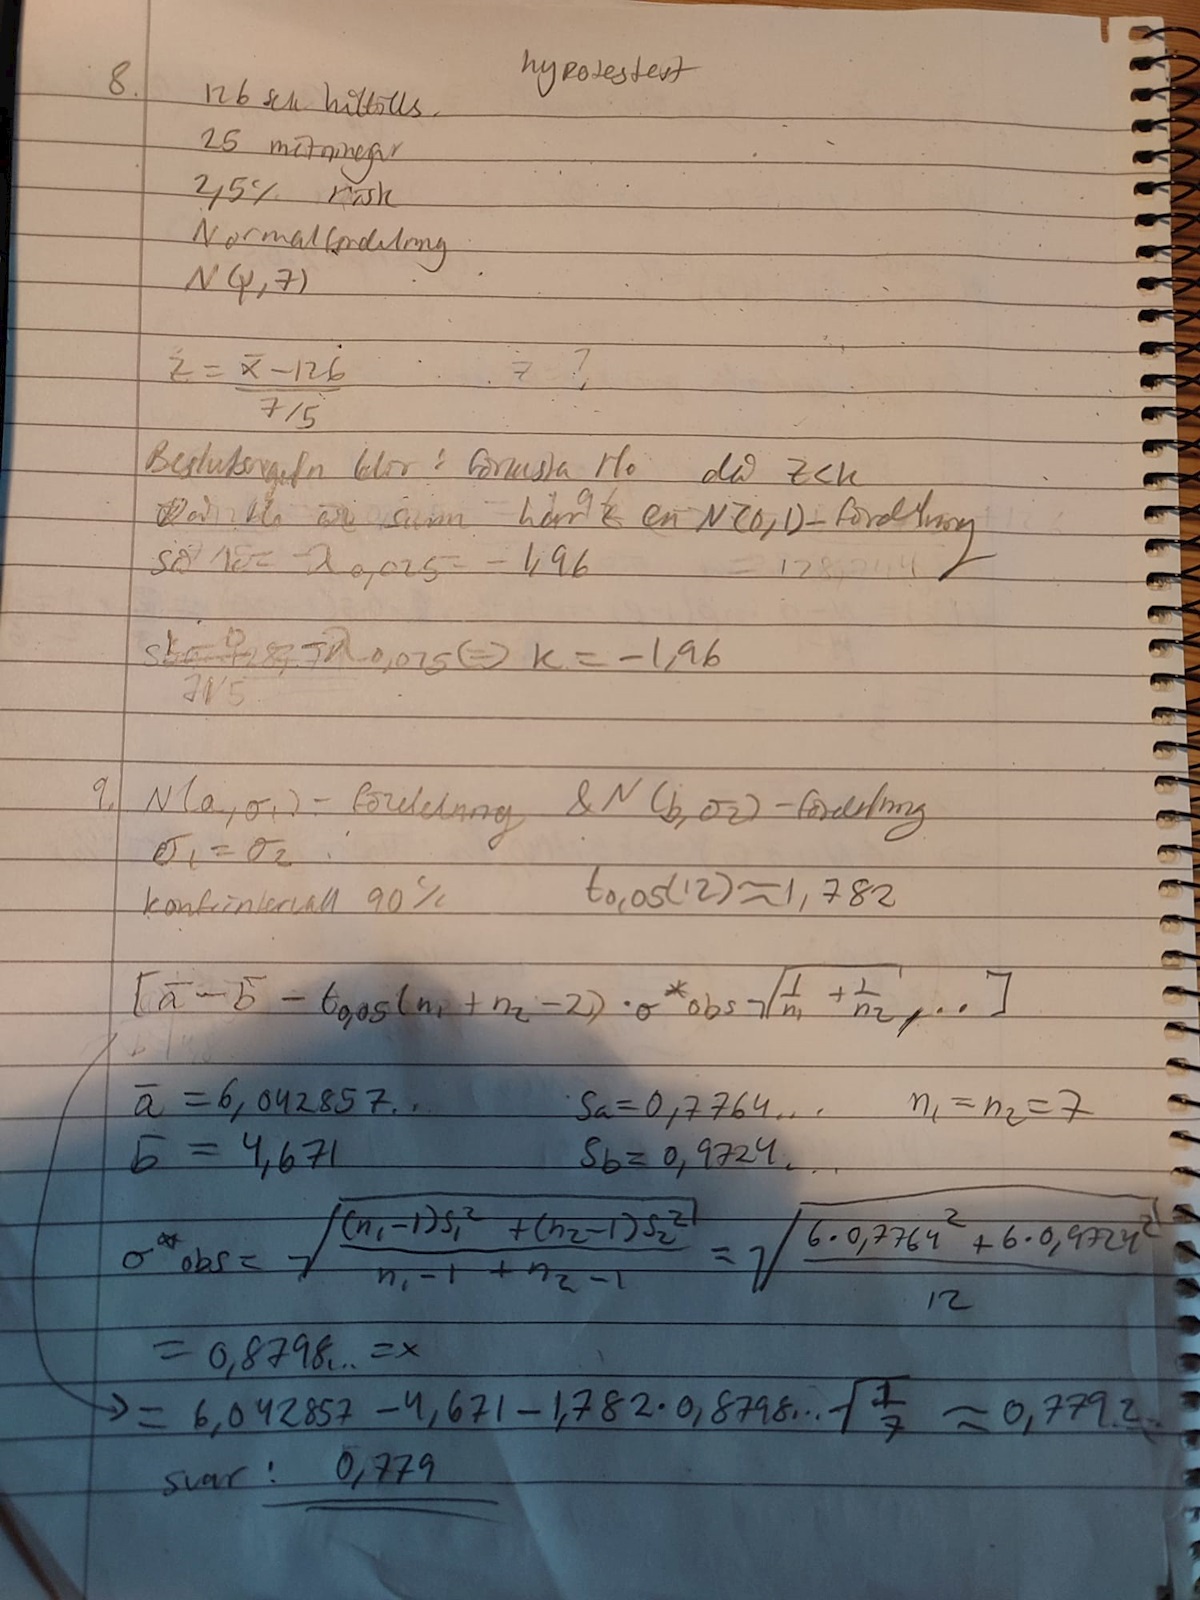 hypotestest
8. 126 sek hittills.
25 mätningar
2,5% risk
Normalfördelning
N(μ,7)
z = x̄ - 126 / 7/5 z ?
Beslutsregeln blir: förkasta H₀ då z<k
är sann har z en N(0,1)-fördelning
så k = -λ0,025 = -1,96 = 128,744
-0,025 ⇔ k = -1,96
9. N(a,σ₁)-fördelning & N(b,σ₂)-fördelning
σ₁ = σ₂
konfintervall 90% t0,05(12) ≈ 1,782
[ā - b̄ - t0,05(n₁ + n₂ - 2) · σ*obs √(1/n₁ + 1/n₂), ...]
ā = 6,042857.. Sa = 0,7764... n₁ = n₂ = 7
b̄ = 4,671 Sb = 0,9724....
σ*obs = √((n₁-1)S₁² + (n₂-1)S₂² / n₁-1 + n₂-1) = √(6·0,7764² + 6·0,9724² / 12)
= 0,8798... = x
→ = 6,042857 - 4,671 - 1,782·0,8798...√(1/7) ≈ 0,7792..
svar: 0,779